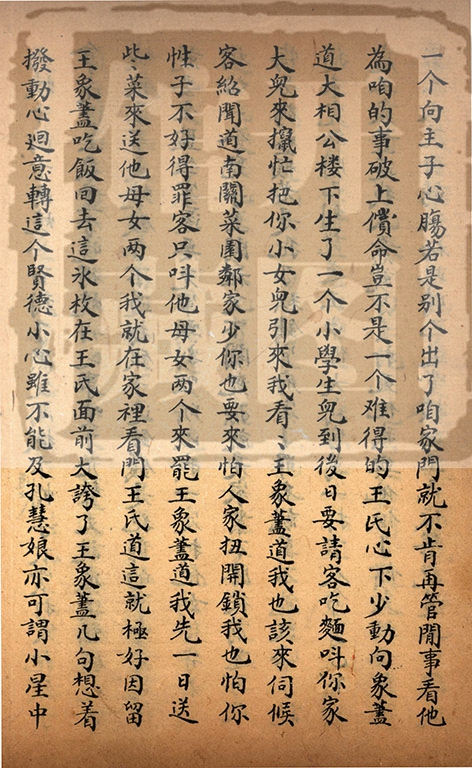 一个向主子心膓若是别个出了咱家門就不肯再管閒事看他
為咱的事破上償命豈不是一个难得的王氏心下少動向象藎
道大相公楼下生了一个小學生兒到後日要請客吃麵呌你家
大兒來攛忙把你小女兒引來我看〻王象藎道我也該來伺候
客紹聞道南關菜園鄰家少你也要來怕人家扭開鎖我也怕你
性子不好得罪客只呌他母女两个來罷王象藎道我先一日送
些〻菜來送他母女两个我就在家裡看門王氏道這就極好因留
王象藎吃飯回去這氷枚在王氏面前大誇了王象藎几句想着
撥動心廻意轉這个賢德小心雖不能及孔慧娘亦可謂小星中